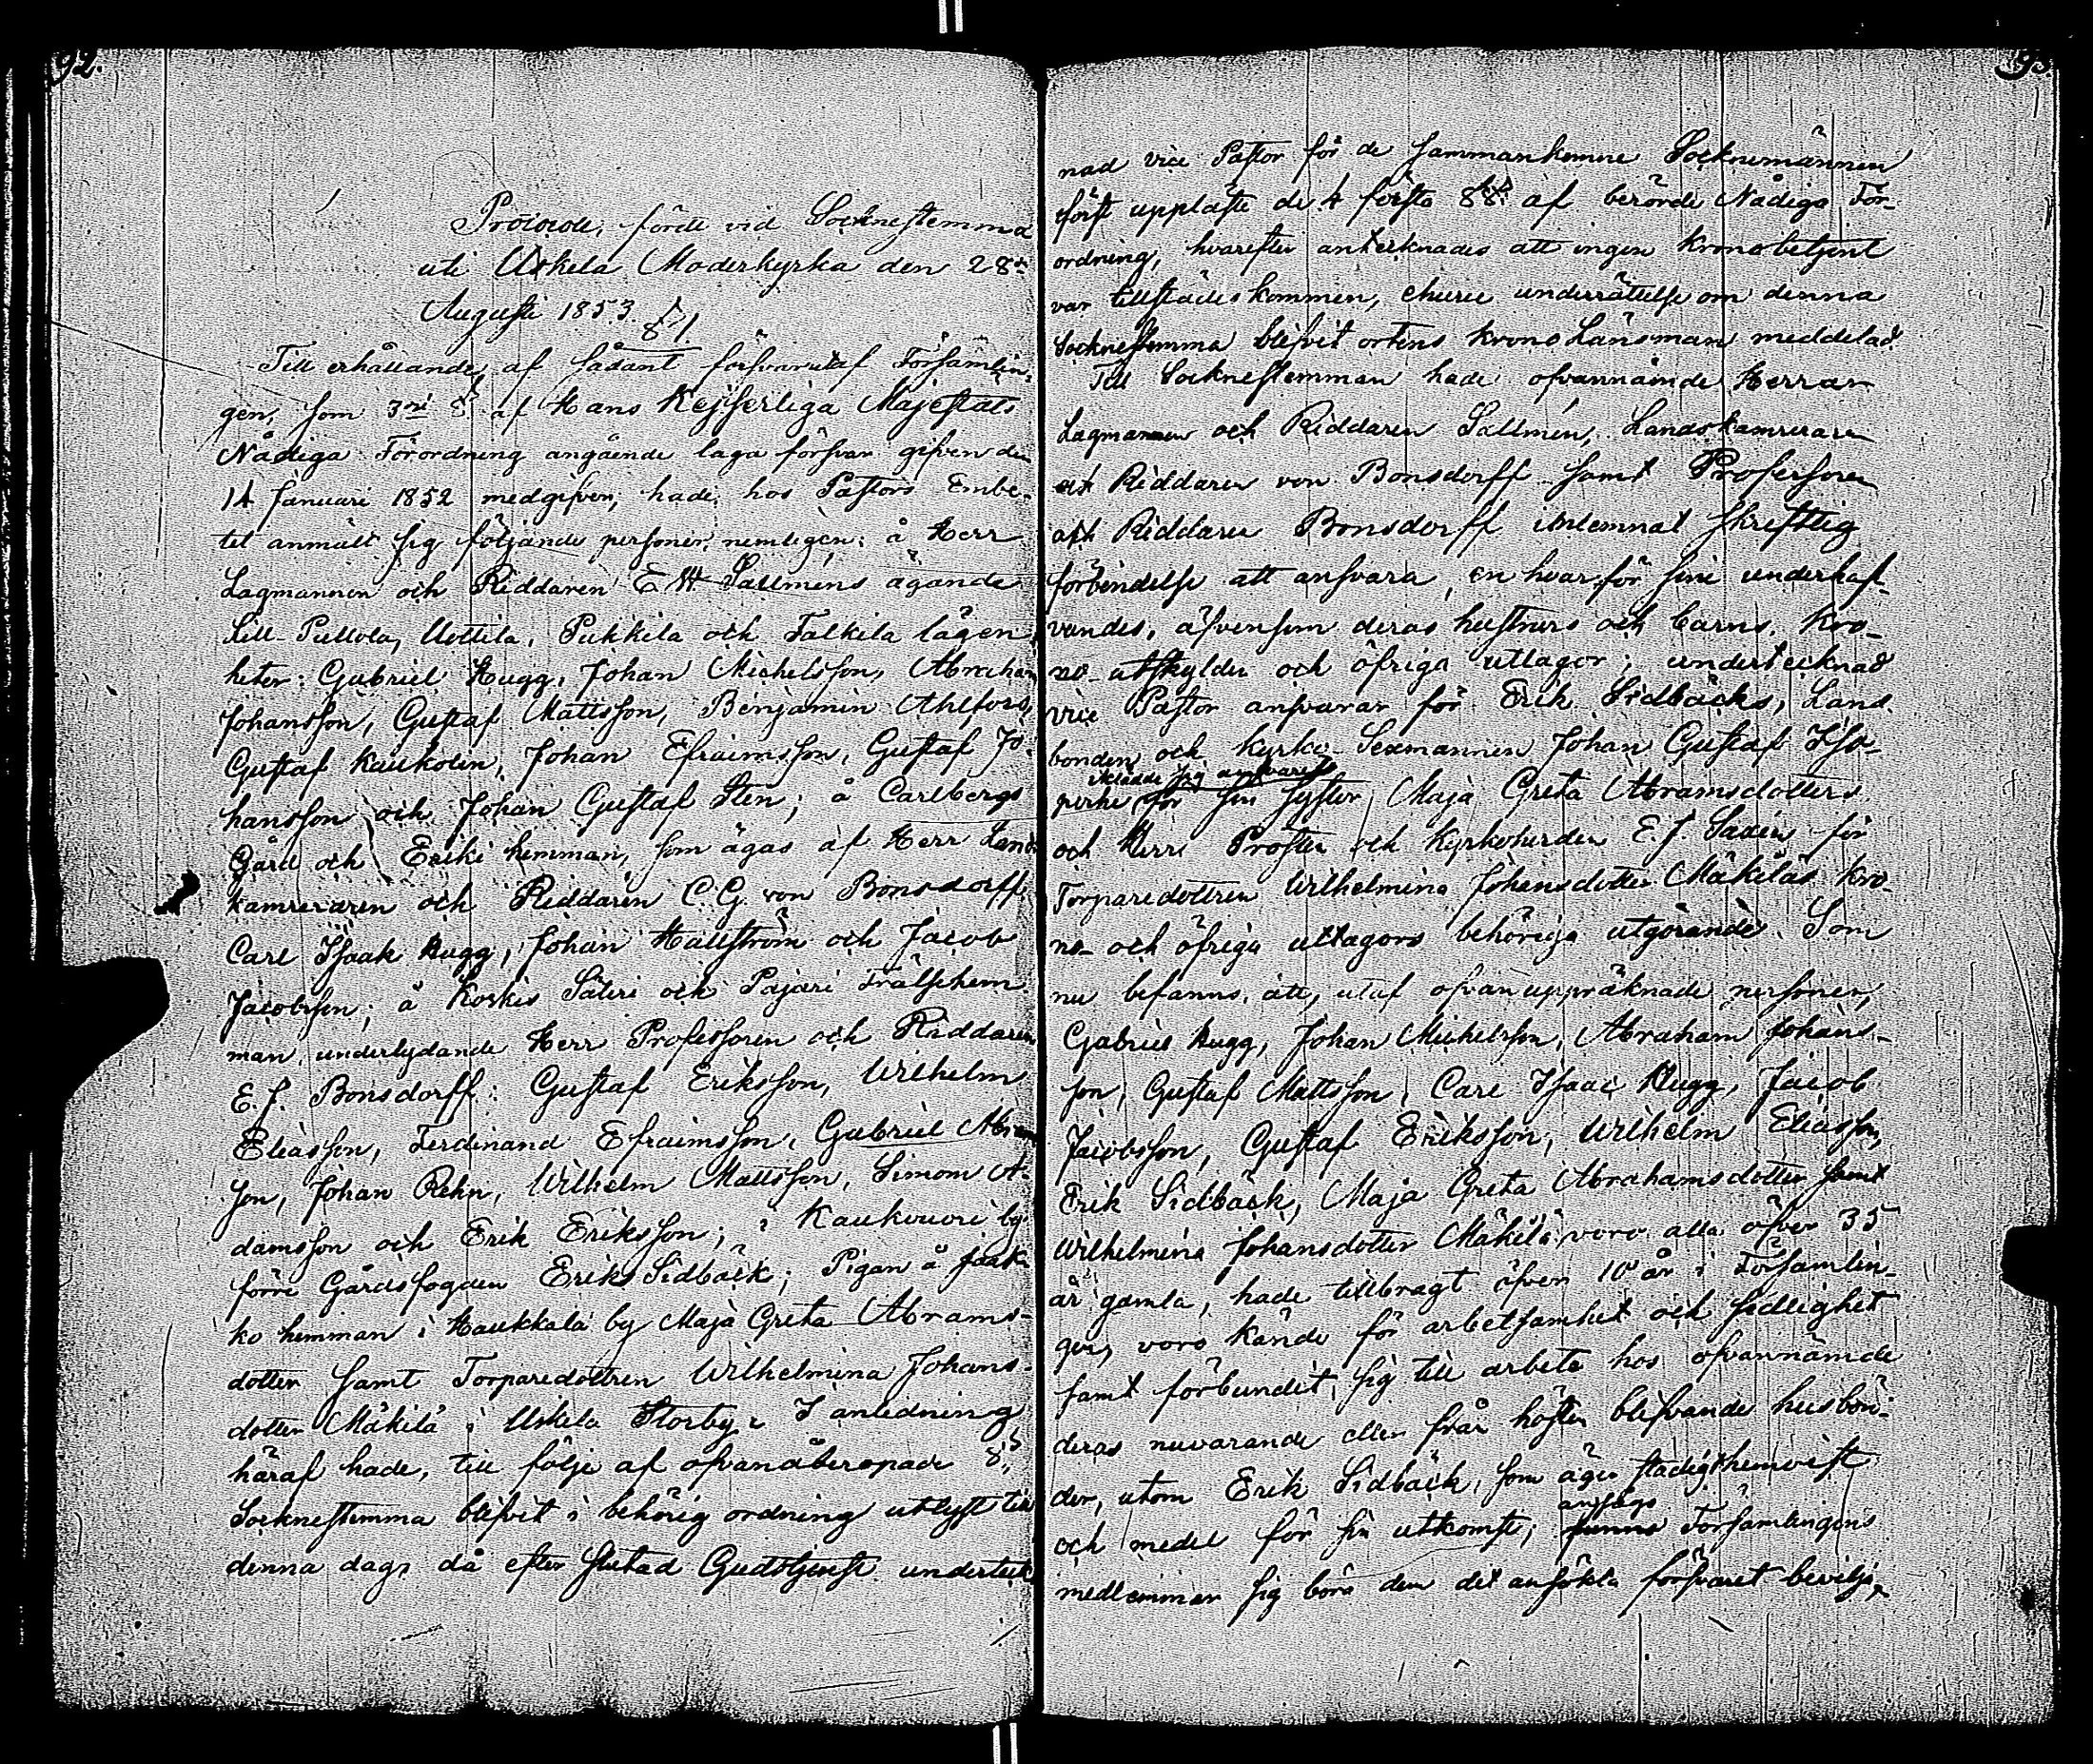 92.
Protocoll, fördt vid Sockenstemma
uti Uskela Moderkyrka den 28de
Augusti 1853.
§ 1
Till erhållande af sådant försvar utaf Församlin-
gen, som 3ne § af Hans Kejserliga Majestäts
Nådiga Förordning angående laga försvar gifven den
14 Januari 1852 medgifver, hade hos Pastors Embe-
tet anmält sig följande personer, nemligen: å Herr
Lagmannen och Riddaren E W Sallméns ägande
Lill-Pullola, Uottila, Pukkila och Talkila lägen-
heter: Gabriel Hugg, Johan Michelsson, Abraham
Johansson, Gustaf Mattsson, Benjamin Ahlfors,
Gustaf Kaukolin, Johan Efraimsson, Gustaf Jo-
hansson och Johan Gustaf Sten; å Carlberga
Gård och Eriki hemman, som ägas af Herr Lands
kamreraren och Riddaren C. G. von Bonsdorff
Carl Isaak Hugg, Johan Hallström och Jacob
Jacobsson; å Koskis Säteri och Pajari Frälsehem-
man, underlydande Herr Professoren och Riddaren
E. J. Bonsdorff: Gustaf Eriksson, Wilhelm
Eliasson, Ferdinand Efraimsson, Gabriel Abram
son, Johan Rehn, Wilhelm Mattsson, Simon A-
damsson och Erik Eriksson; i Kaukvuori by
förre Gårdsfogden Eriks Sidbäck; Pigan å Jaak-
ko hemman i Haukkala by Maja Greta Abrams-
dotter samt Torparedottren Wilhelmina Johans-
dotter Mäkilä i Uskela Storby. I anledning
häraf hade, till följe af ofvanåberopade §,
Sockenstemma blifvit i behörig ordning utlyst till
denna dag, då efter slutad Gudstjenst underteck
93.
nad vice Pastor för de sammankomne Sockenemännen
först uppläste de 4 första §§ af berörde Nådiga För-
ordning, hvarefter antecknades att ingen Kronobetjent
var tillstädes kommen, ehuru underrättelse om denna
Sockenstemma blifvit ortens Krono Länsman meddelad.
Till Sockenstemman hade ofvannämde Herrar
Lagmannen och Riddaren Sallmén, Landskamreraren
och Riddaren von Bonsdorff samt Professoren
och Riddaren Bonsdorff inlemnat skriftlig
förbindelse att ansvara, en hvar för sine underhaf-
vandes, äfvensom deras hustrurs och barns, Kro-
no-utskylder och öfriga utlagor; undertecknad
vice Pastor ansvarar för Erik Sidbäcks, Land-
bonden och Kyrko-Sexmannen Johan Gustaf Iso-
iklädde sig ansvaret
perhe för sin syster Maja Greta Abramsdotters
och Herr Prosten och Kyrkoherden E. J. Saxén för
Torparedottren Wilhelmina Johansdotter Mäkiläs Kro-
no- och öfriga utlagors behöriga utgörande. Som
nu befanns, att, utaf ofvan uppräknade personer,
Gabriel Hugg, Johan Michelsson, Abraham Johans-
son, Gustaf Mattsson, Carl Isaac Hugg, Jacob
Jacobsson, Gustaf Eriksson, Wilhelm Eliasson,
Erik Sidbäck, Maja Greta Abrahamsdotter samt
Wilhelmina Johansdotter Mäkilä voro alla öfver 35
år gamla, hade tillbragt öfver 10 år i Församlin-
gen, voro kände för arbetsamhet och sedlighet
samt förbundit sig till arbete hos ofvannämde
deras nuvarande eller från hösten blifvande husbön-
der, utom Erik Sidbäck, som äger stadigt hemvist
ansågo
och medel för sin utkomst; funno Församlingens
medlemmar sig böra dem det ansökta försvaret bevilja,